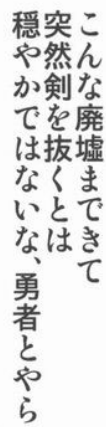 こんな廃墟まできて
突然剣を抜くとは
穏やかではないな、勇者とやら